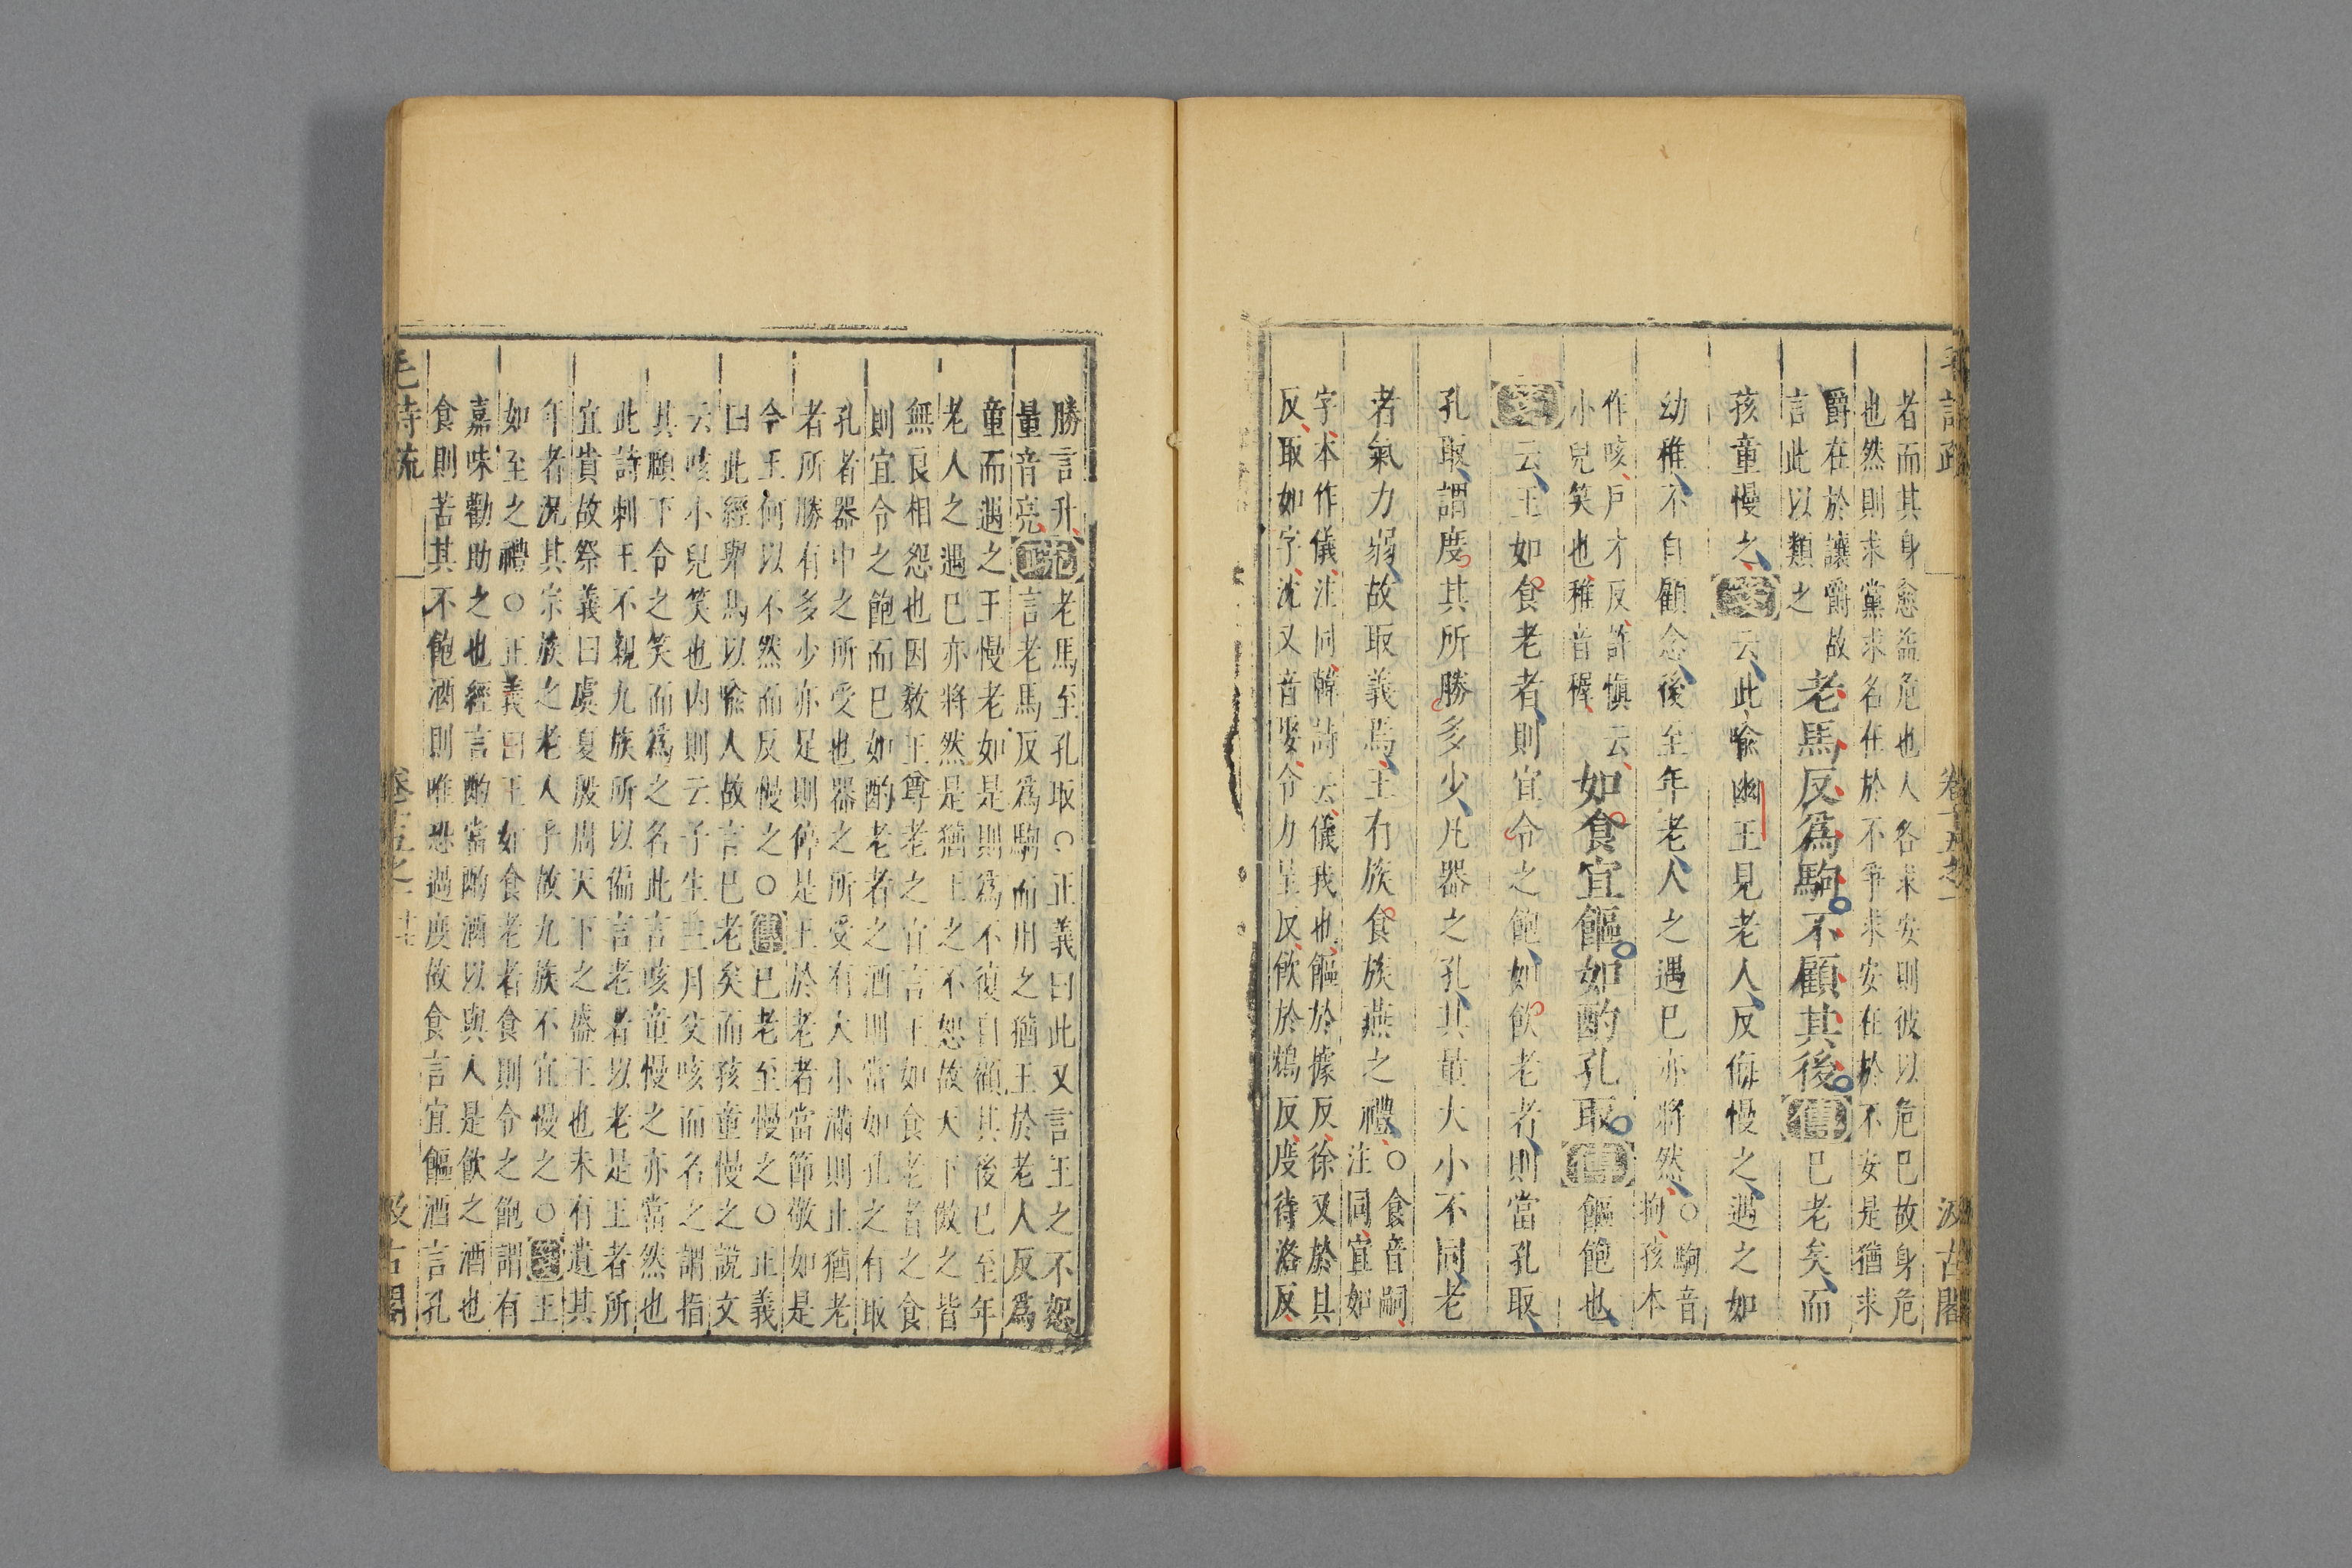 毛詩疏　卷十五之一　汲古閣
者而其身愈益危也人各求安則彼以危已故身危
也然則求黨求名在於不爭求安在於不安是猶求
爵在於讓爵故
言此以類之
老馬反爲駒不顧其後傳已老矣而
孩童慢之箋云此喻幽王見老人反侮慢之遇之如
幼稚不自顧念後至年老人之遇已亦將然
○駒音
拘孩本
作咳戶才反許愼云
小兒笑也稚音稺
如食宜饇如酌孔取傳饇飽也
箋云王如食老者則宜令之飽如飲老者則當孔取
孔取謂度其所勝多少凡器之孔其量大小不同老
者氣力弱故取義焉王有族食族燕之禮
○食音嗣
注同宜如
字本作儀注同韓詩云儀我也饇於據反徐又於具
反取如字沈又音娶令力呈反飲於鴆反度待洛反
勝言升
量音亮
疏
老馬至孔取○正義曰此又言王之不恕
言老馬反爲駒而用之猶王於老人反爲
童而遇之王慢老如是則爲不復自顧其後已至年
老人之遇已亦將然是猶王之不恕故天下傚之皆
無良相怨也因敎王尊老之宜言王如食老者之食
則宜令之飽而已如酌老者之酒則當如孔之有取
孔者器中之所受也器之所受有大小滿則止猶老
者所勝有多少亦足則停是王於老者當節敬如是
今王何以不然而反慢之○傳已老至慢之○正義
曰此經舉馬以喻人故言已老矣而孩童慢之說文
云咳小兒笑也内則云子生三月父咳而名之謂指
其頤下令之笑而爲之名此言咳童慢之亦當然也
此詩刺王不親九族所以偏言老者以老是王者所
宜貴故祭義曰虞夏殷周天下之盛王也未有遺其
年者況其宗族之老人乎故九族不宜慢之○箋王
如至之禮○正義曰王如食老者食則令之飽謂有
嘉味勸助之也經言酌當酌酒以與人是飲之酒也
食則苦其不飽酒則唯恐過度故食言宜饇酒言孔
毛詩疏　卷十五之一　汲古閣